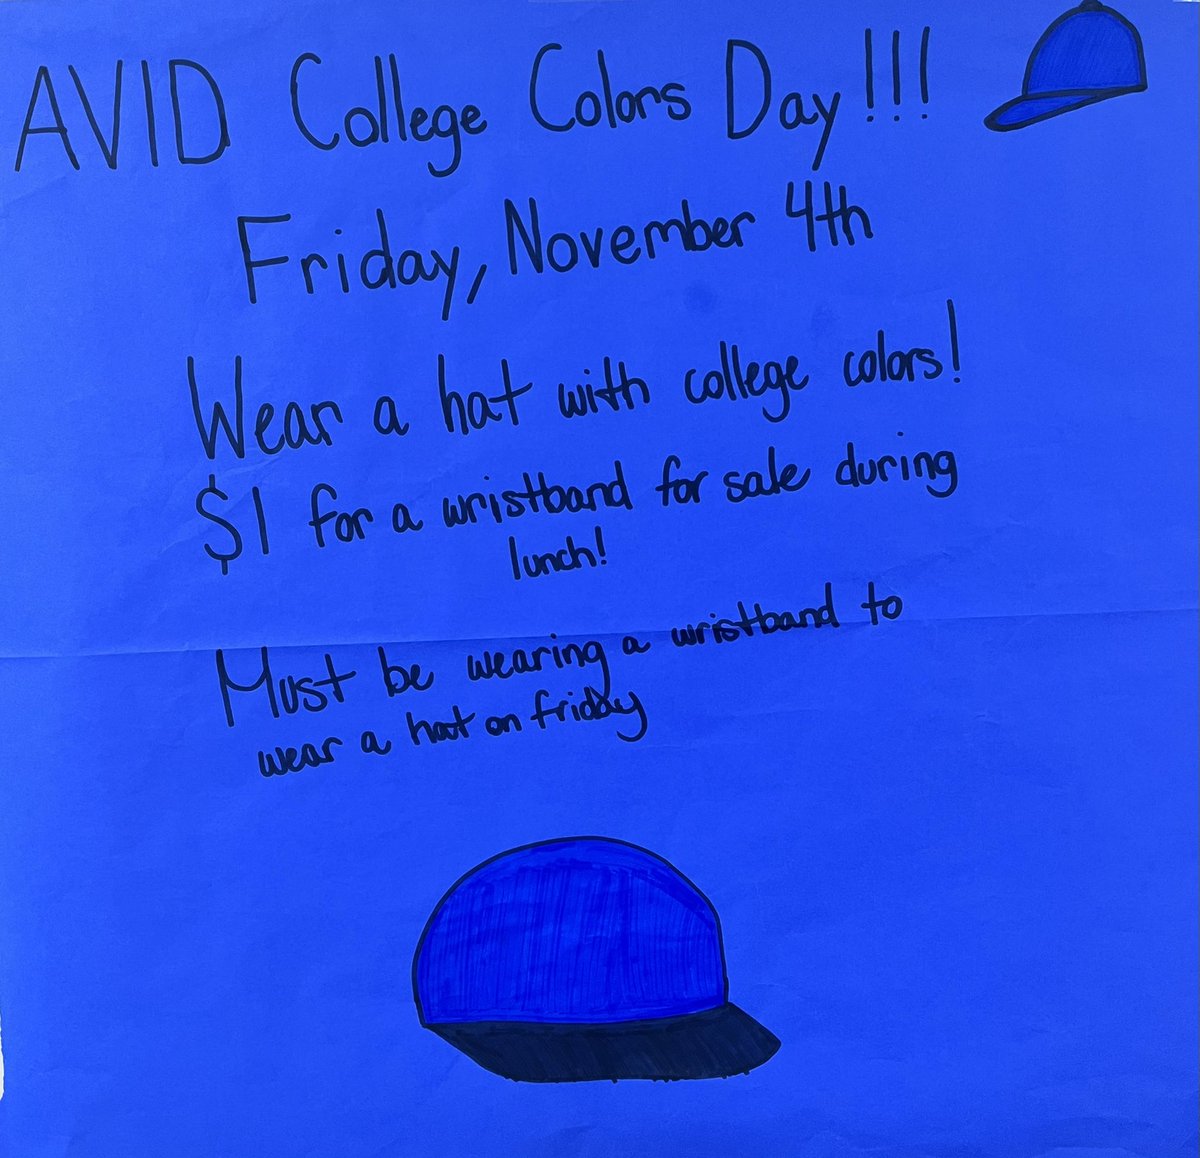 AVID College Colors Day!!!
Friday, November 4th
Wear a hat with college colors!
$1 for a wristband for sale during
lunch!
Must be wearing a wristband to
wear a hat on friday